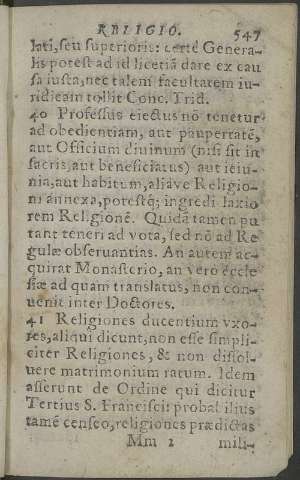 RELIGIO. 547
lati, seu superioris: certè Genera-
lis potest ad id licētiā dare ex cau
sa iusta, nec talem facultatem iu-
ridicam tollit Conc. Trid.
40 Professus eiectus nō tenetur
ad obedientiam, aut paupertatē,
aut Officium diuinum (nisi sit in
sacris, aut beneficiatus) aut ieiu-
nia, aut habitum, aliave Religio-
ni annexa, potestq; ingredi laxio
rem Religionē. Quidā tamen pu
tant teneri ad vota, sed nō ad Re
gulæ obseruantias. An autem ac-
quirat Monasterio, an vero eccle
siæ ad quam translatus, non con-
uenit inter Doctores.
41 Religiones ducentium vxo-
res, aliqui dicunt, non esse simpli-
citer Religiones, & non dissol-
uere matrimonium ratum. Idem
asserunt de Ordine qui dicitur
Tertius S. Francisci: probabilius
tamē censeo, religiones prædictas
Mm 2 mili-